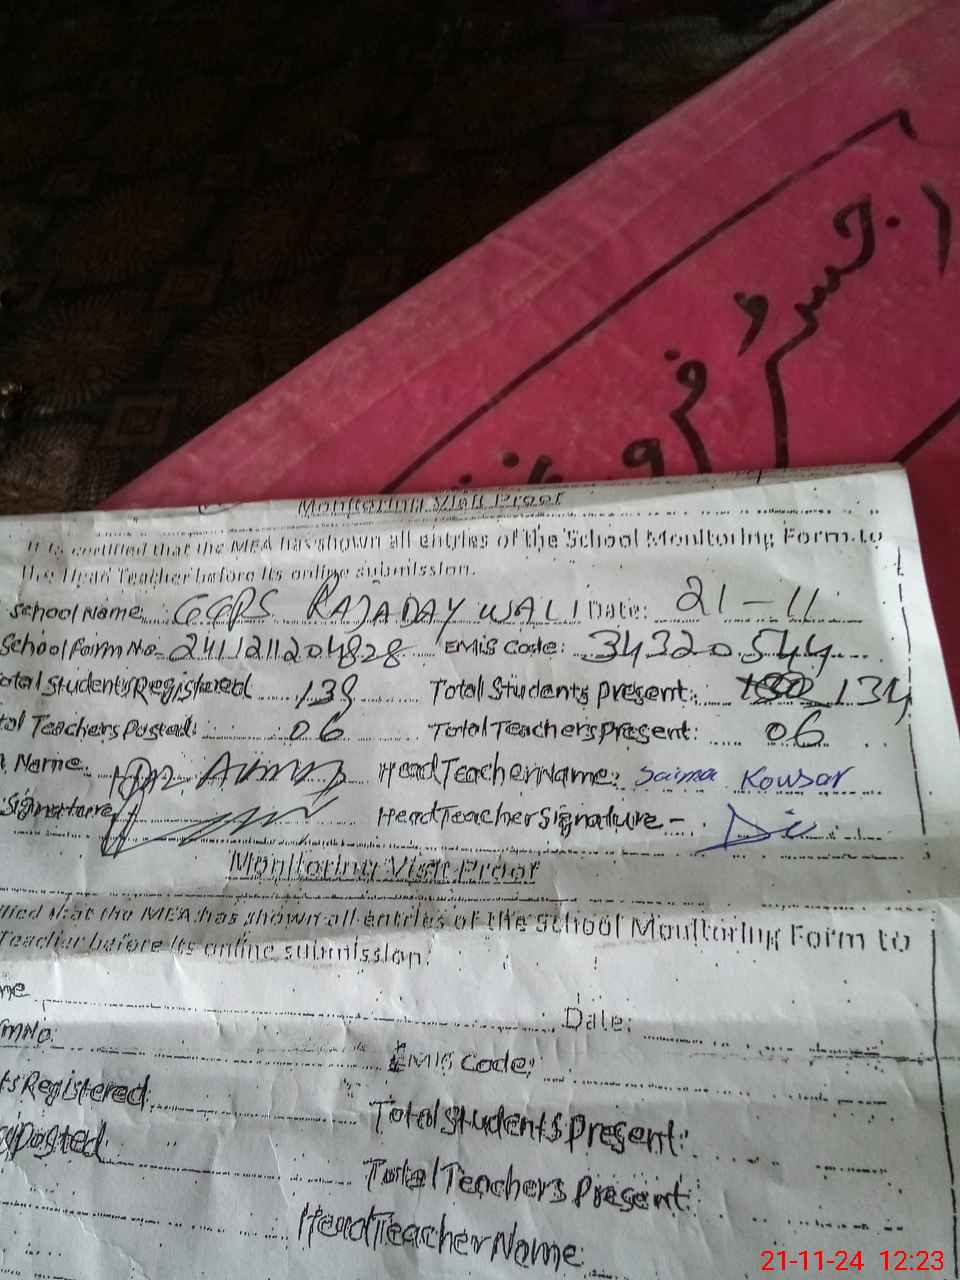 Monitoring Visit Proof
It is certified that the MEA has shown all entries of the School Monitoring Form to
the Head Teacher before its online submission.
School Name: GGPS RAJADAY WALI Date: 21-11
School Form No- 2411211204828 EMIS Code: 34320544
otal Students Registered 138 Total Students Present: 134
tal Teachers Posted: 06 Total Teachers Present: 06
Name: Head Teacher Name: Saima Kowsar
Signature Head Teacher Signature-
Monitoring Visit Proof
ified that the MEA has shown all entries of the School Monitoring Form to
Teacher before its online submission.
me Date:
rm No: EMIS Code:
ts Registered: Total Students Present:
Posted: Total Teachers Present
Head Teacher Name:
21-11-24 12:23